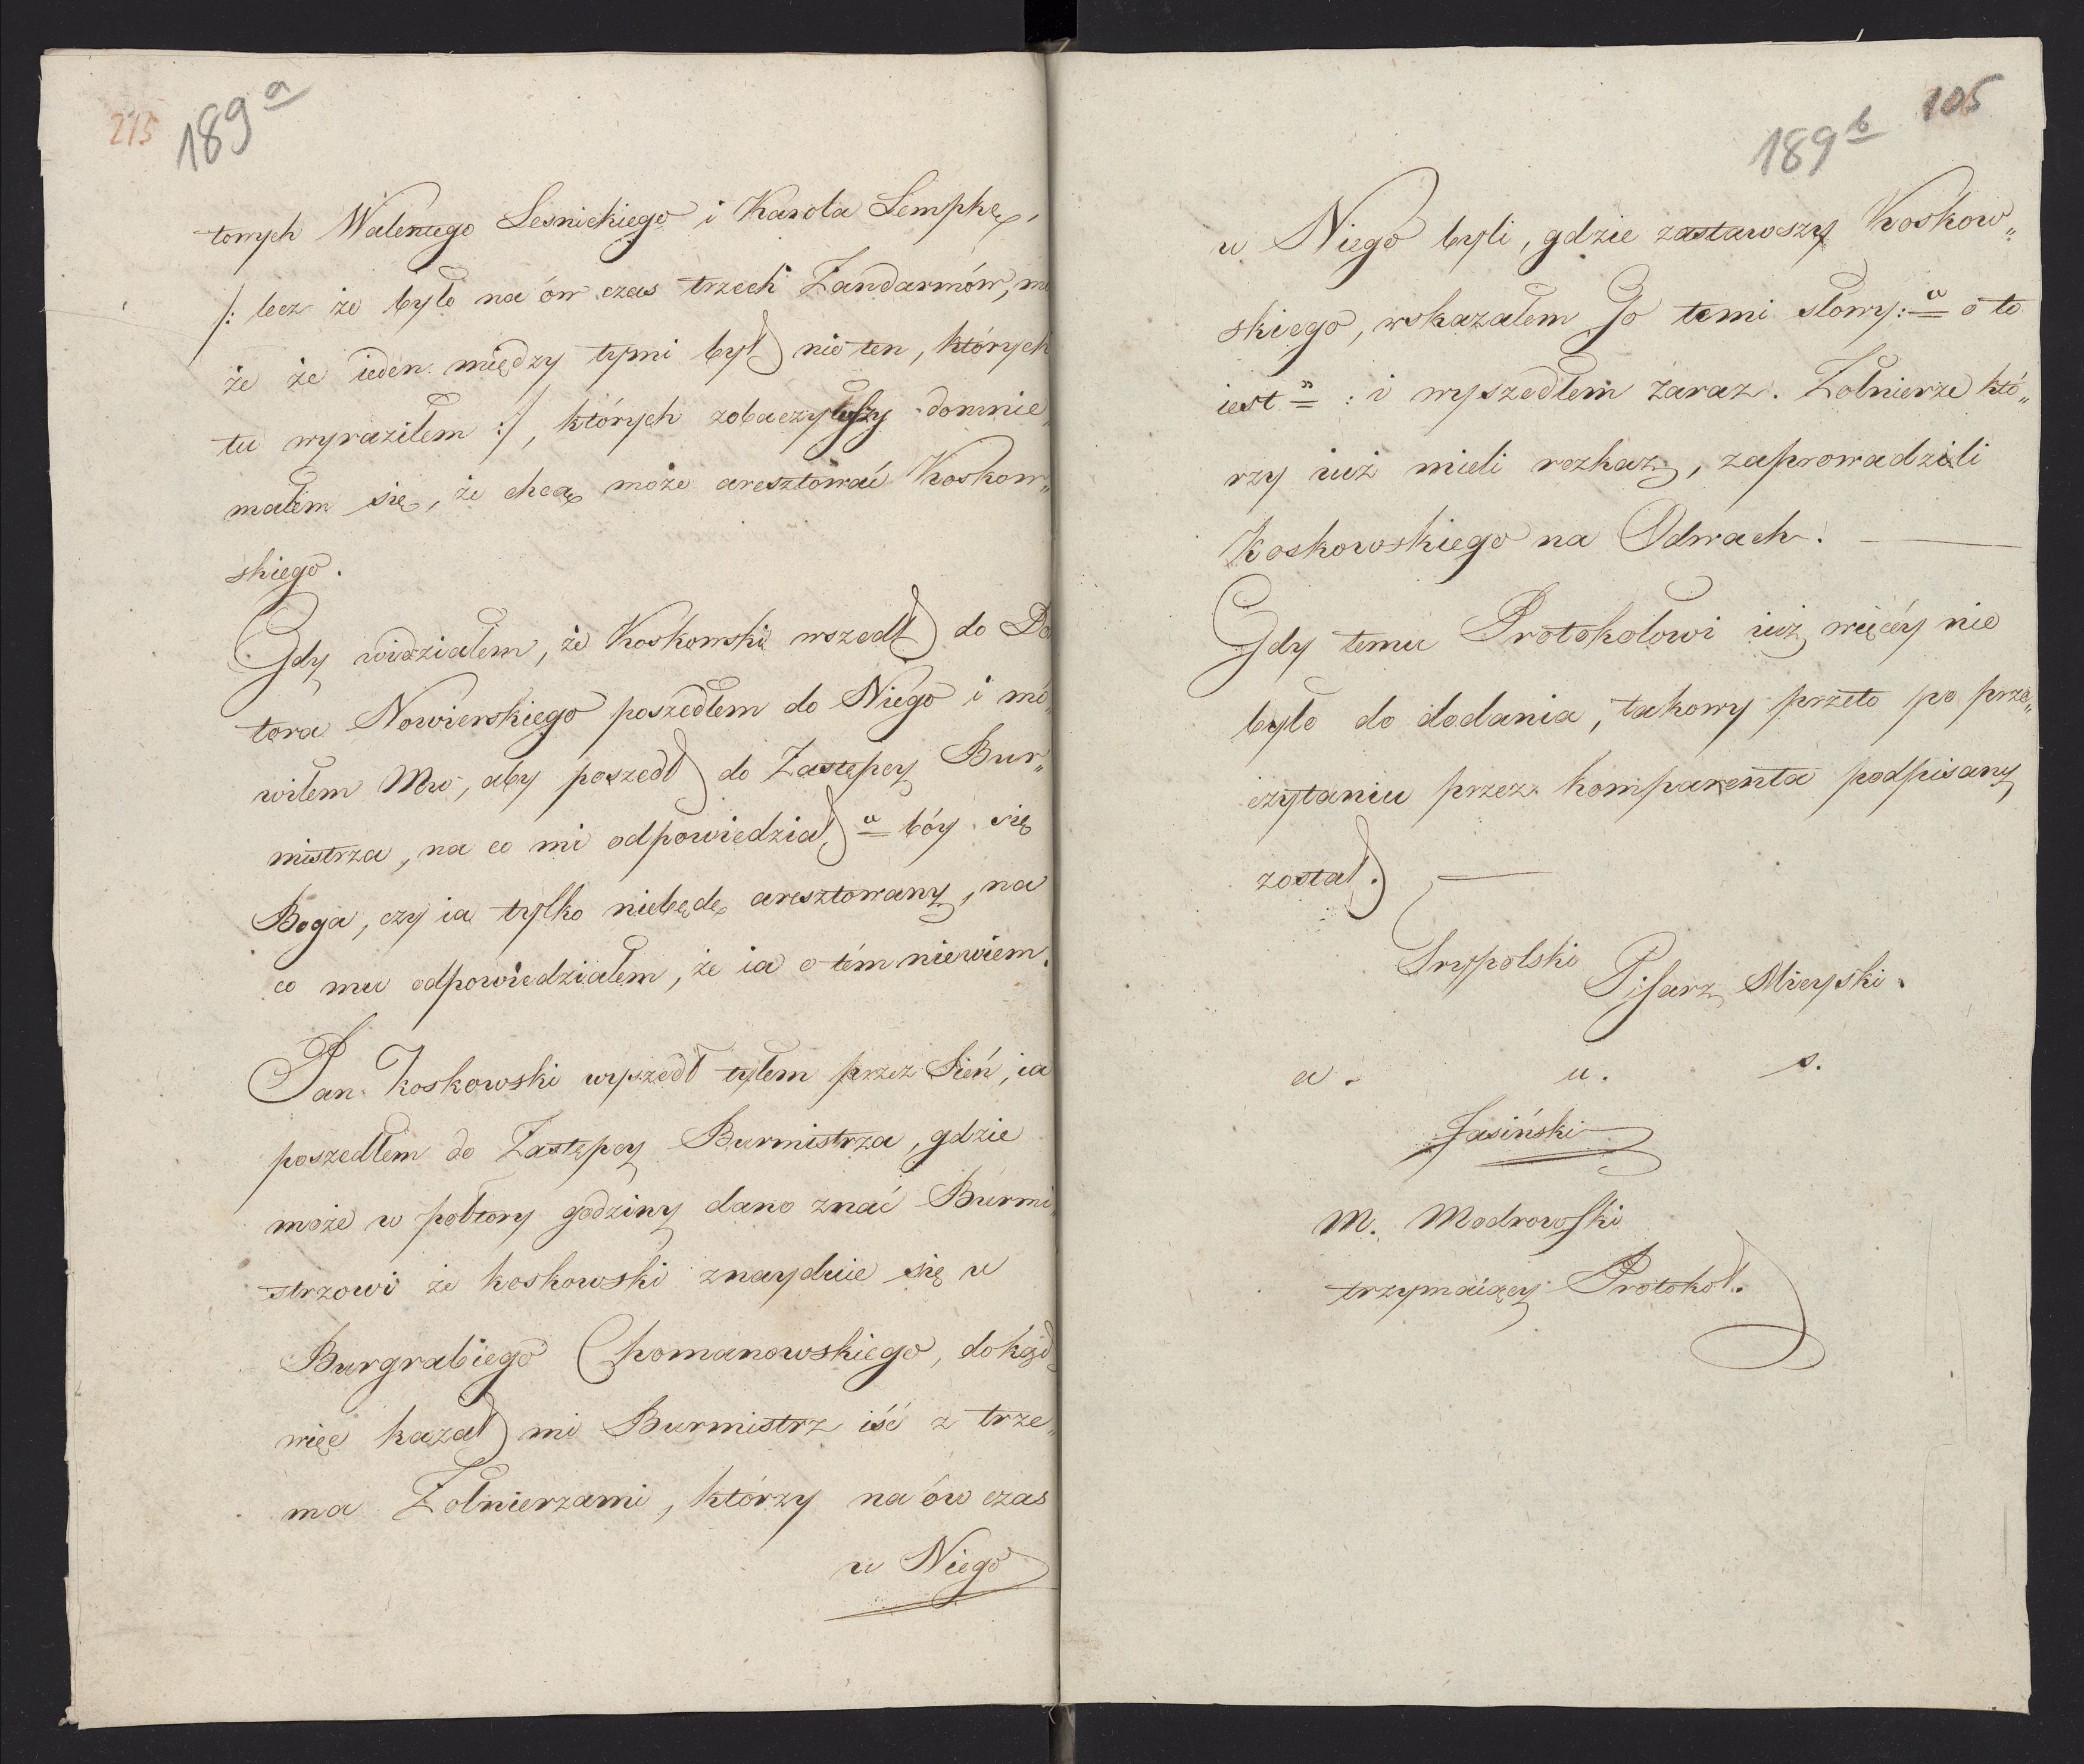 215 189a
tonych Walentego Lesnickiego i Karola Lempkę,
/: lecz że było na ów czas trzech Żandarmów, mo
że że ieden między tymi był nie ten, których
tu wyraziłem :/, których zobaczywszy domnie„
małem się, że chcą może aresztować Koskow„
skiego.
Gdy widziałem, że Koskowski wszedł do Do
tora Nowierskiego poszedłem do Niego i mó„
wiłem Mu, aby poszedł do Zastępcy Bur„
mistrza, na co mi odpowiedział, „bóy się
Boga, czy ia tylko niebędę aresztowany, na
co mu odpowiedziałem, że ia o tém niewiem.
Pan Koskowski wyszedł tyłem przez Sień, ia
poszedłem do Zastępcy Burmistrza, gdzie
może w półtory godziny dano znać Burmi
strzowi że Koskowski znayduie się u
Burgrabiego Chomanowskiego, dokąd
więc kazał mi Burmistrz iść z trze„
ma Żołnierzami, którzy na ów czas
u Niego
105
189b
u Niego byli, gdzie zastawszy Koskow„
skiego, wskazałem Go temi słowy: „oto
iest” : i wyszedłem zaraz. Żołnierze któ„
rzy iuż mieli rozkaz, zaprowadzili
Koskowskiego na Odwach. —
Gdy temu Protokołowi iuż więcéy nie
było do dodania, takowy przeto po prze„
czytaniu przez komparenta podpisany
został. —
Trypolski Pisarz Mieyski.
a. u. s.
Jasiński
M. Modrowski
trzymaiący Protokół.